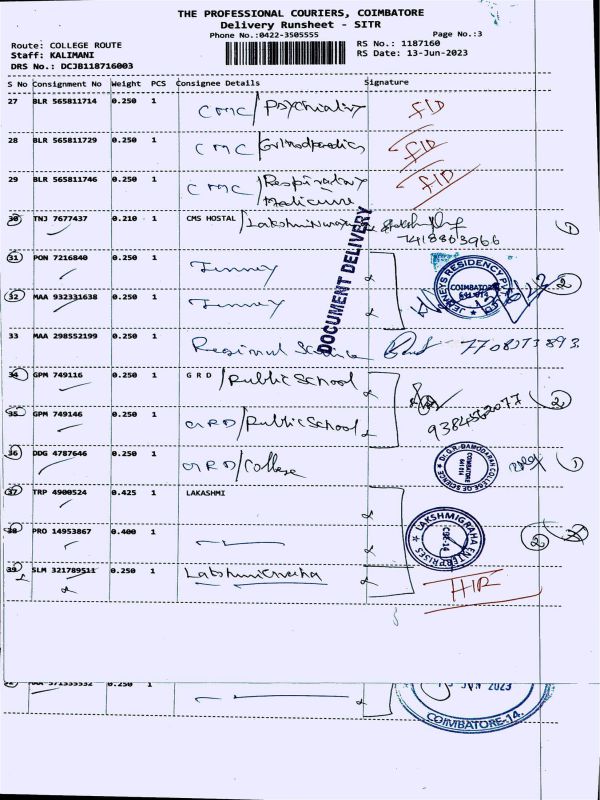 THE PROFESSIONAL COURIERS, COIMBATORE
Delivery Runsheet - SITR
Phone No.:0422-3505555
Page No.:3
Route: COLLEGE ROUTE
RS No.: 1187160
Staff: KALIMANI
RS Date: 13-Jun-2023
DRS No.: DCJB118716003
S No Consignment No Weight PCS Consignee Details Signature
27 BLR 565811714 0.250 1 CMC/Psychiatry FID
28 BLR 565811729 0.250 1 CMC/Orthopaedics FID
29 BLR 565811746 0.250 1 CMC/Respiratory Medicine FID
30 TNJ 7677437 0.210 1 CMS HOSTAL
7418863966 1
31 PON 7216840 0.250 1 Jenney
32 MAA 932331638 0.250 1 Jenney 2
JENNEYS RESIDENCY PVT
COIMBATORE
641 014
DOCUMENT DELIVERY
33 MAA 298552199 0.250 1 Regional Science 7708073893
34 GPM 749116 0.250 1 G R D /Public School
35 GPM 749146 0.250 1 GRD/Public School 9384562077 2
36 DDG 4787646 0.250 1 GRD/College 1
Dr. G.R. DAMODARAN COLLEGE OF SCIENCE
COIMBATORE
641 014
37 TRP 4900524 0.425 1 LAKASHMI
38 PRO 14953867 0.400 1 2
LAKSHMIGRAHA ENTERPRISES
CBE-14
39 SLM 321789511 0.250 1 Lakshmigraha HIR
MAA 371555532 0.250 1
JUN 2023
COIMBATORE-14.